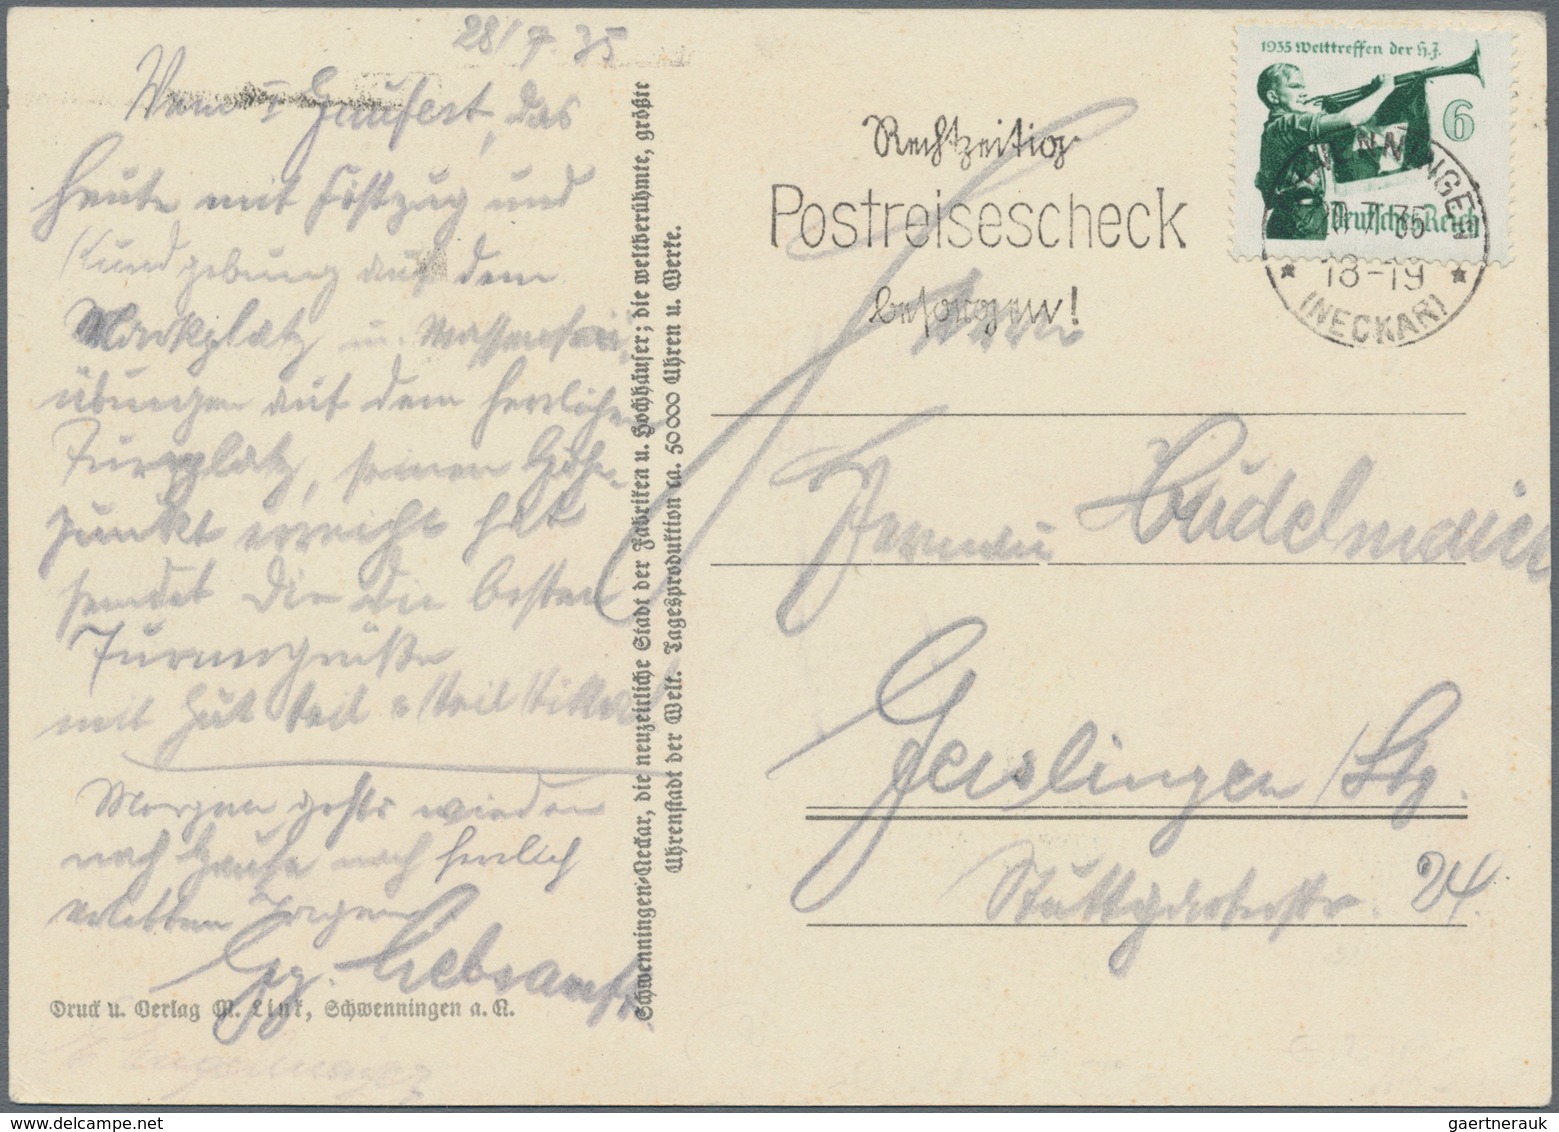 28/7.35
Vom I Gaufest, das
heute mit Festzug und
Kundgebung auf dem
Marktplatz u. Massenfrei-
übungen auf dem herrlichen
Turnplatz, seinen Höhe-
punkt erreicht hat
sendet Dir die besten
Turnergrüße
mit Gut Heil u.
Morgen gehts wieder
nach Hause nach herrlich
verlebten Tagen
Gg.
Druck u. Verlag M. Link, Schwenningen a. N.
Schwenningen-Neckar, die neuzeitliche Stadt der Fabriken u. Hochhäuser; die weltberühmte, größte
Uhrenstadt der Welt. Tagesproduktion ca. 50000 Uhren u. Werke.
Rechtzeitig
Postreisescheck
besorgen!
1935 Welttreffen der H.J.
6
Deutsches Reich
7.35
18-19
(NECKAR)
Herrn
Hermann Budelmaier
Geislingen/Stg.
Stuttgarterstr. 24
gaertnerauk@yahoo.com